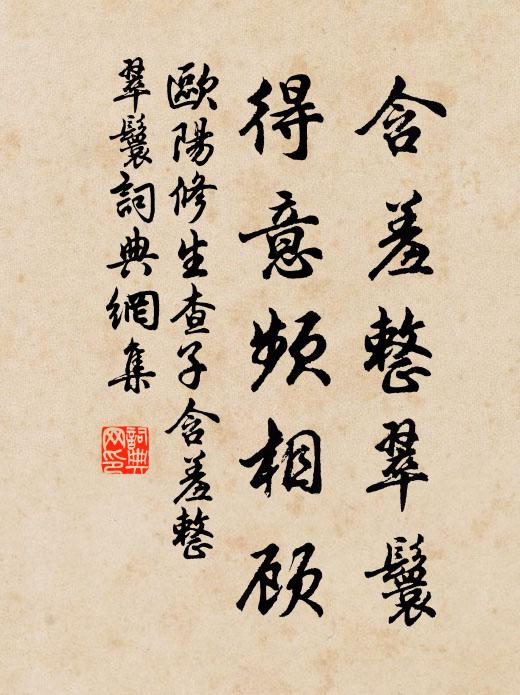 含羞整翠鬟
得意频相顾
歐陽修生查子含羞整
翠鬟詞典網集
詞典网印